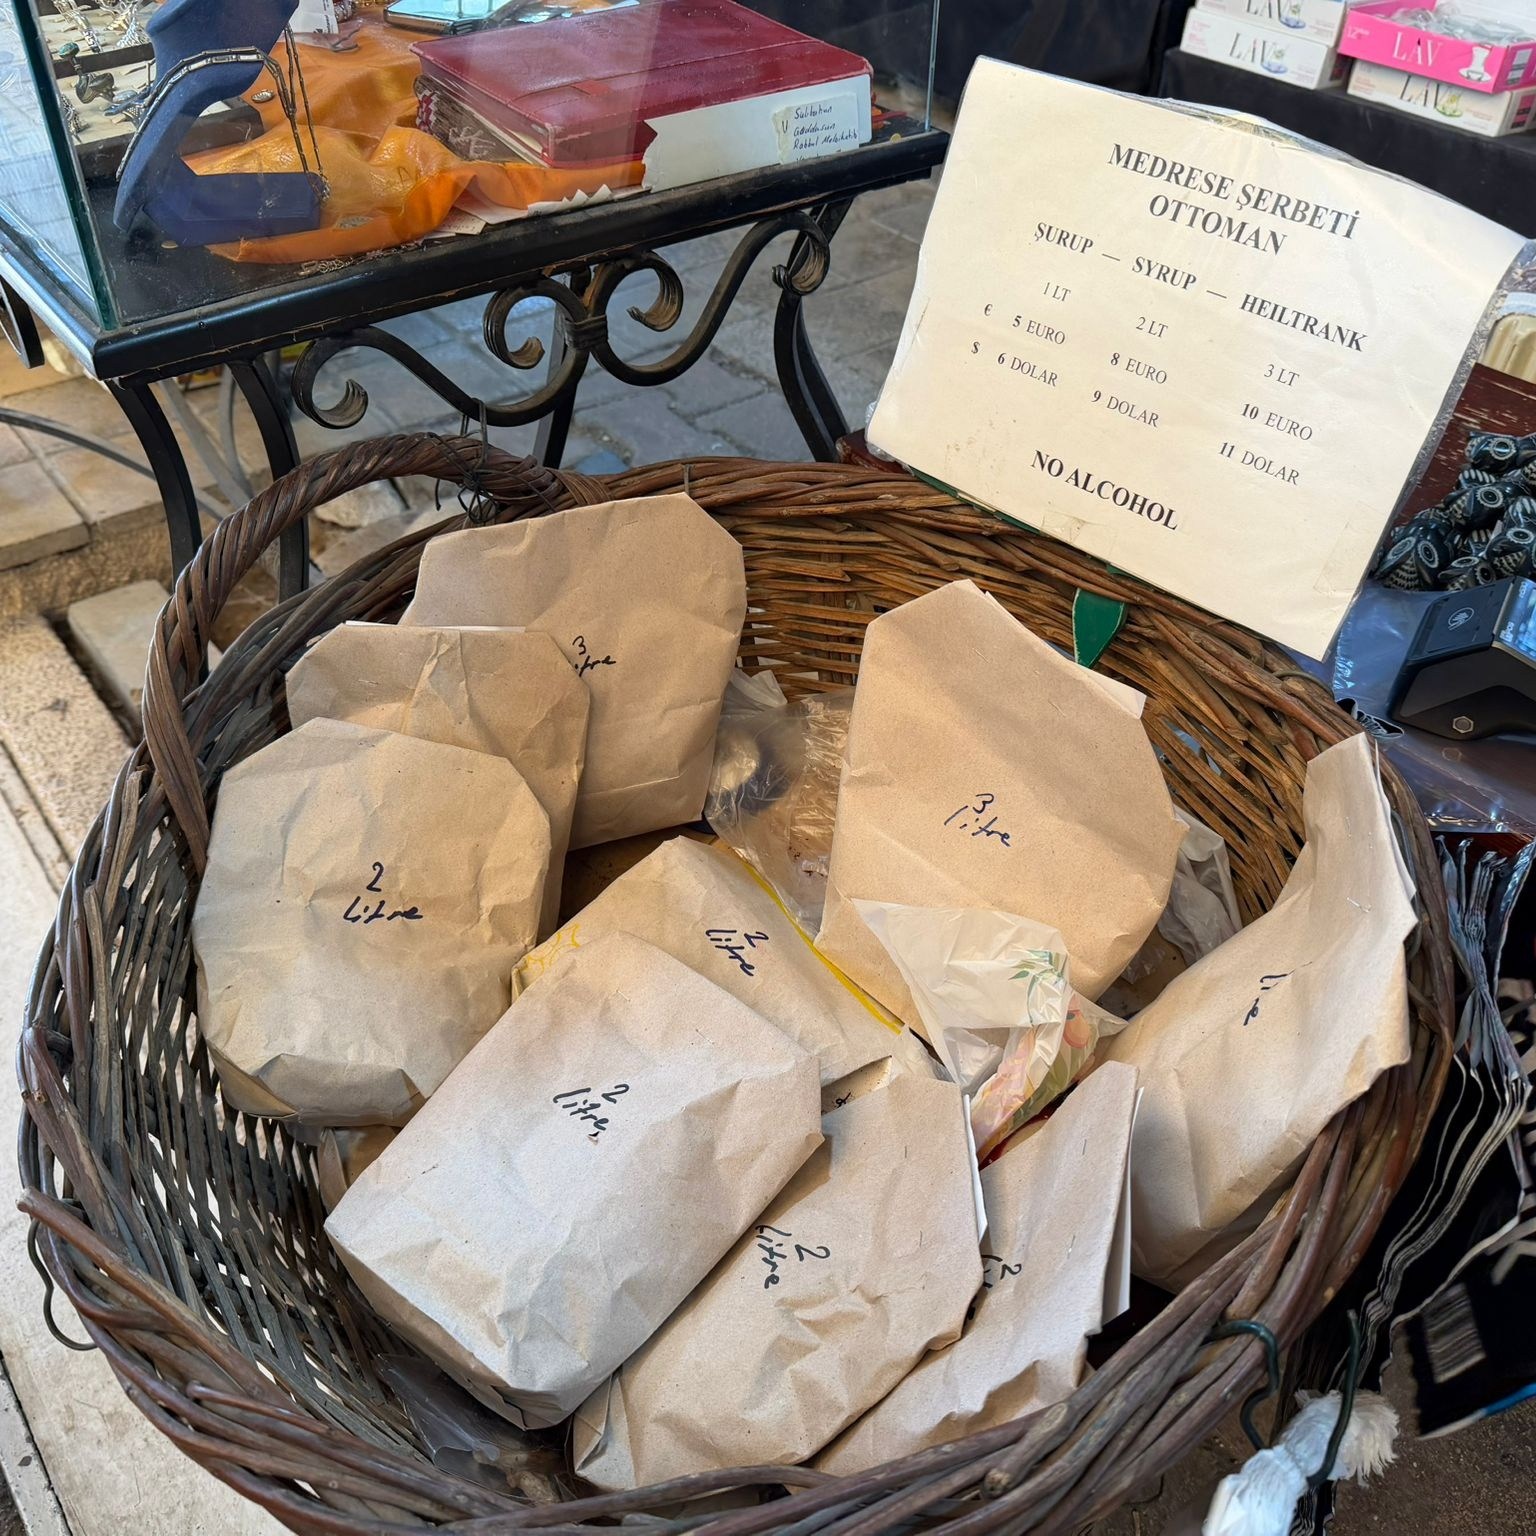 LAV
LAV
LAV
LAV
V Sulibahan
MEDRESE ŞERBETİ
OTTOMAN
ŞURUP — SYRUP — HEILTRANK
1 LT 2 LT 3 LT
€ 5 EURO 8 EURO 10 EURO
$ 6 DOLAR 9 DOLAR 11 DOLAR
NO ALCOHOL
3
litre
3
litre
2
litre
2
litre
2
litre
2
litre
2